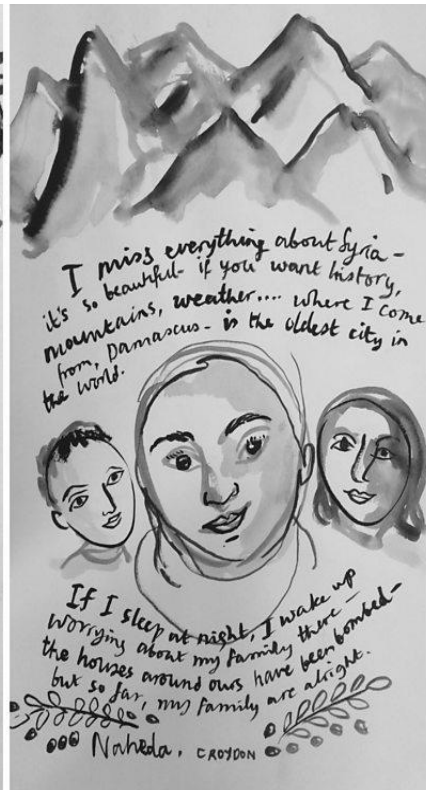 I miss everything about Syria –
it's so beautiful – if you want history,
mountains, weather.... where I come
from, Damascus – is the oldest city in
the world.
If I sleep at night, I wake up
worrying about my family there –
the houses around ours have been bombed –
but so far, my family are alright.
Naheda, CROYDON